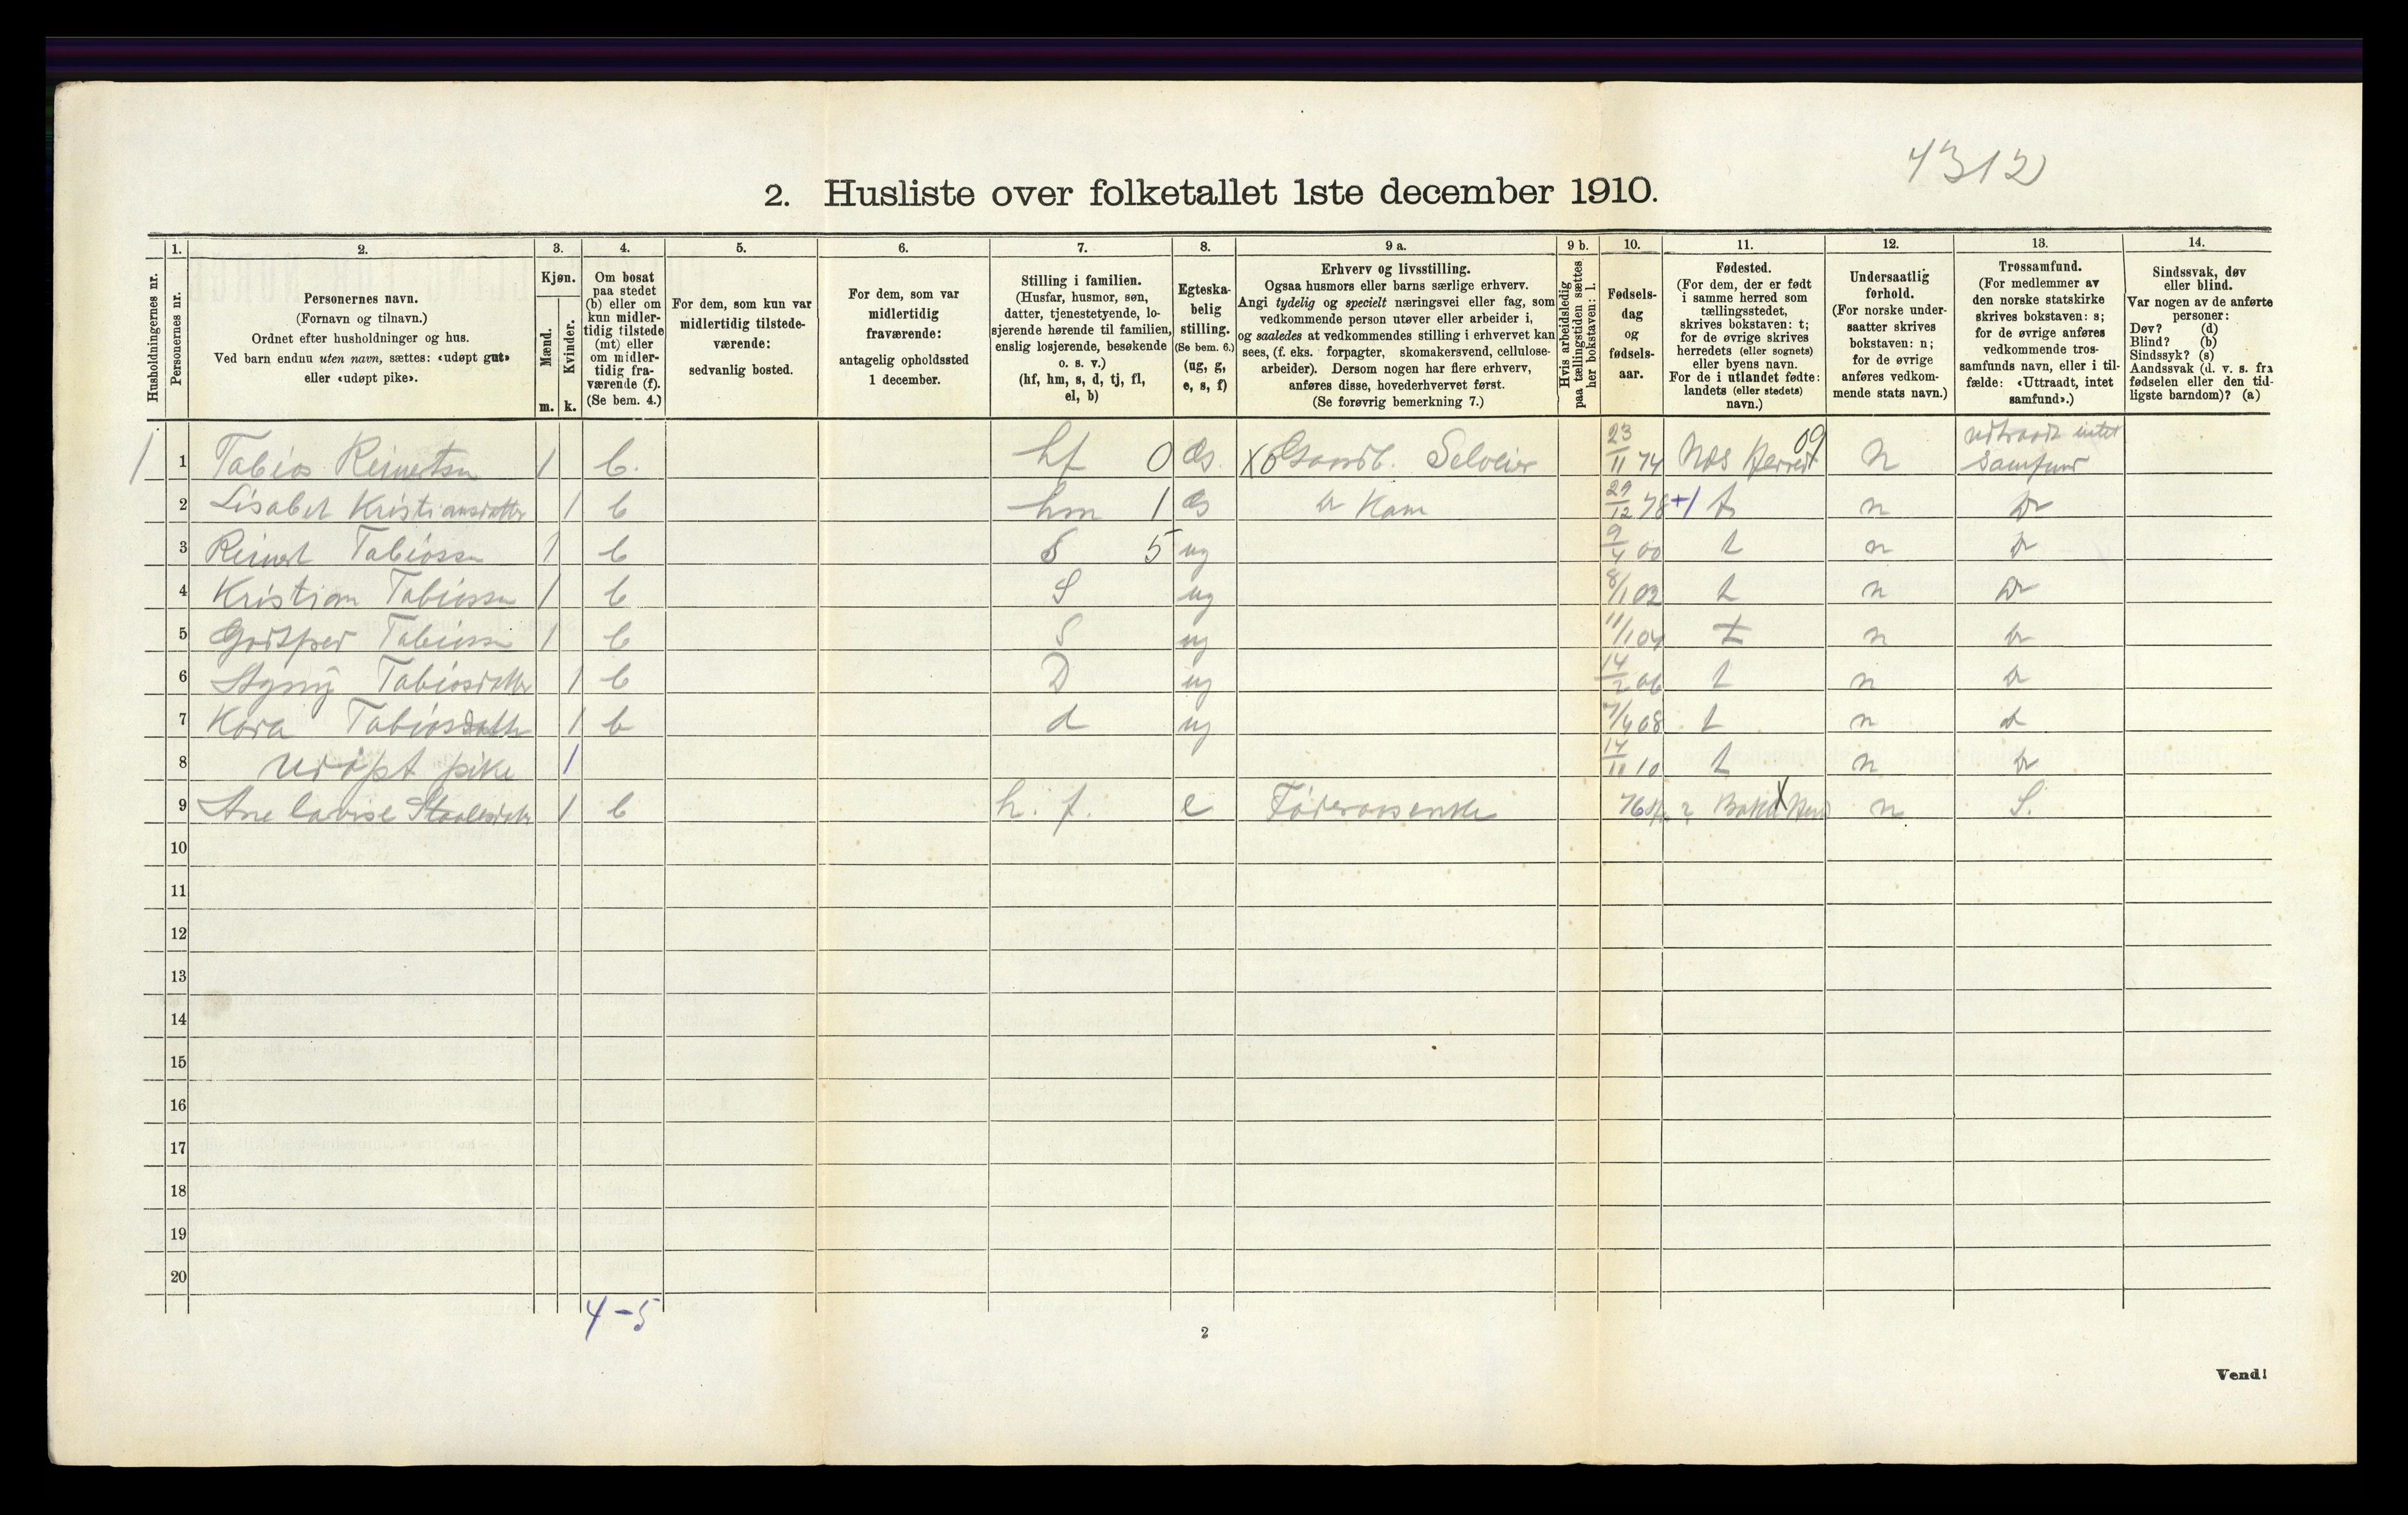 4312
2. Husliste over folketallet 1ste december 1910.
Husholdningernes nr.
1.
Personernes nr.
2.
Personernes navn.
(Fornavn og tilnavn.)
Ordnet efter husholdninger og hus.
Ved barn endnu uten navn, sættes: «udøpt gut»
eller «udøpt pike».
3.
Kjøn.
Mænd.
Kvinder.
m. k.
4.
Om bosat
paa stedet
(b) eller om
kun midler-
tidig tilstede
(mt) eller
om midler-
tidig fra-
værende (f).
(Se bem. 4.)
5.
For dem, som kun var
midlertidig tilstede-
værende:
sedvanlig bosted.
6.
For dem, som var
midlertidig
fraværende:
antagelig opholdssted
1 december.
7.
Stilling i familien.
(Husfar, husmor, søn,
datter, tjenestetyende, lo-
sjerende hørende til familien,
enslig losjerende, besøkende
o. s. v.)
(hf, hm, s, d, tj, fl,
el, b)
8.
Egteska-
belig
stilling.
(Se bem. 6.)
(ug, g,
e, s, f)
9 a.
Erhverv og livsstilling.
Ogsaa husmors eller barns særlige erhverv.
Angi tydelig og specielt næringsvei eller fag, som
vedkommende person utøver eller arbeider i,
og saaledes at vedkommendes stilling i erhvervet kan
sees, (f. eks. forpagter, skomakersvend, cellulose-
arbeider). Dersom nogen har flere erhverv,
anføres disse, hovederhvervet først.
(Se forøvrig bemerkning 7.)
9 b.
Hvis arbeidsledig
paa tællingstiden sættes
her bokstaven: l.
10.
Fødsels-
dag
og
fødsels-
aar.
11.
Fødested.
(For dem, der er født
i samme herred som
tællingsstedet,
skrives bokstaven: t;
for de øvrige skrives
herredets (eller sognets)
eller byens navn.
For de i utlandet fødte:
landets (eller stedets)
navn.)
12.
Undersaatlig
forhold.
(For norske under-
saatter skrives
bokstaven: n;
for de øvrige
anføres vedkom-
mende stats navn.)
13.
Trossamfund.
(For medlemmer av
den norske statskirke
skrives bokstaven: s;
for de øvrige anføres
vedkommende tros-
samfunds navn, eller i til-
fælde: «Uttraadt, intet
samfund».)
14.
Sindssvak, døv
eller blind.
Var nogen av de anførte
personer:
Døv? (d)
Blind? (b)
Sindssyk? (s)
Aandssvak (d. v. s. fra
fødselen eller den tid-
ligste barndom)? (a)
1 1 Tabias Reinertsen 1 b. hf 0 X Gaardb. Selveier 23/11 74 Nes Herred 09 n udtraadt intet samfund
2 Lisabet Kristiansdatter 1 b hm 1 29/12 78 +1 t n
3 Reinert Tabiassen 1 b S 5 ug 9/4 00 t n
4 Kristian Tabiassen 1 b S ug 8/1 02 t n
5 Godtfred Tabiassen 1 b S ug 11/1 04 t n
6 Agny Tabiasdatter 1 b D ug 14/2 06 t n
7 Kara Tabiasdatter 1 b d ug 7/4 08 t n
8 udøpt pike 1 14/11 10 t n
9 Ane Lovise Staalesdatter 1 b h. f. e Føderaadsenke 76 X n S.
10
11
12
13
14
15
16
17
18
19
20
4-5
2
Vend!